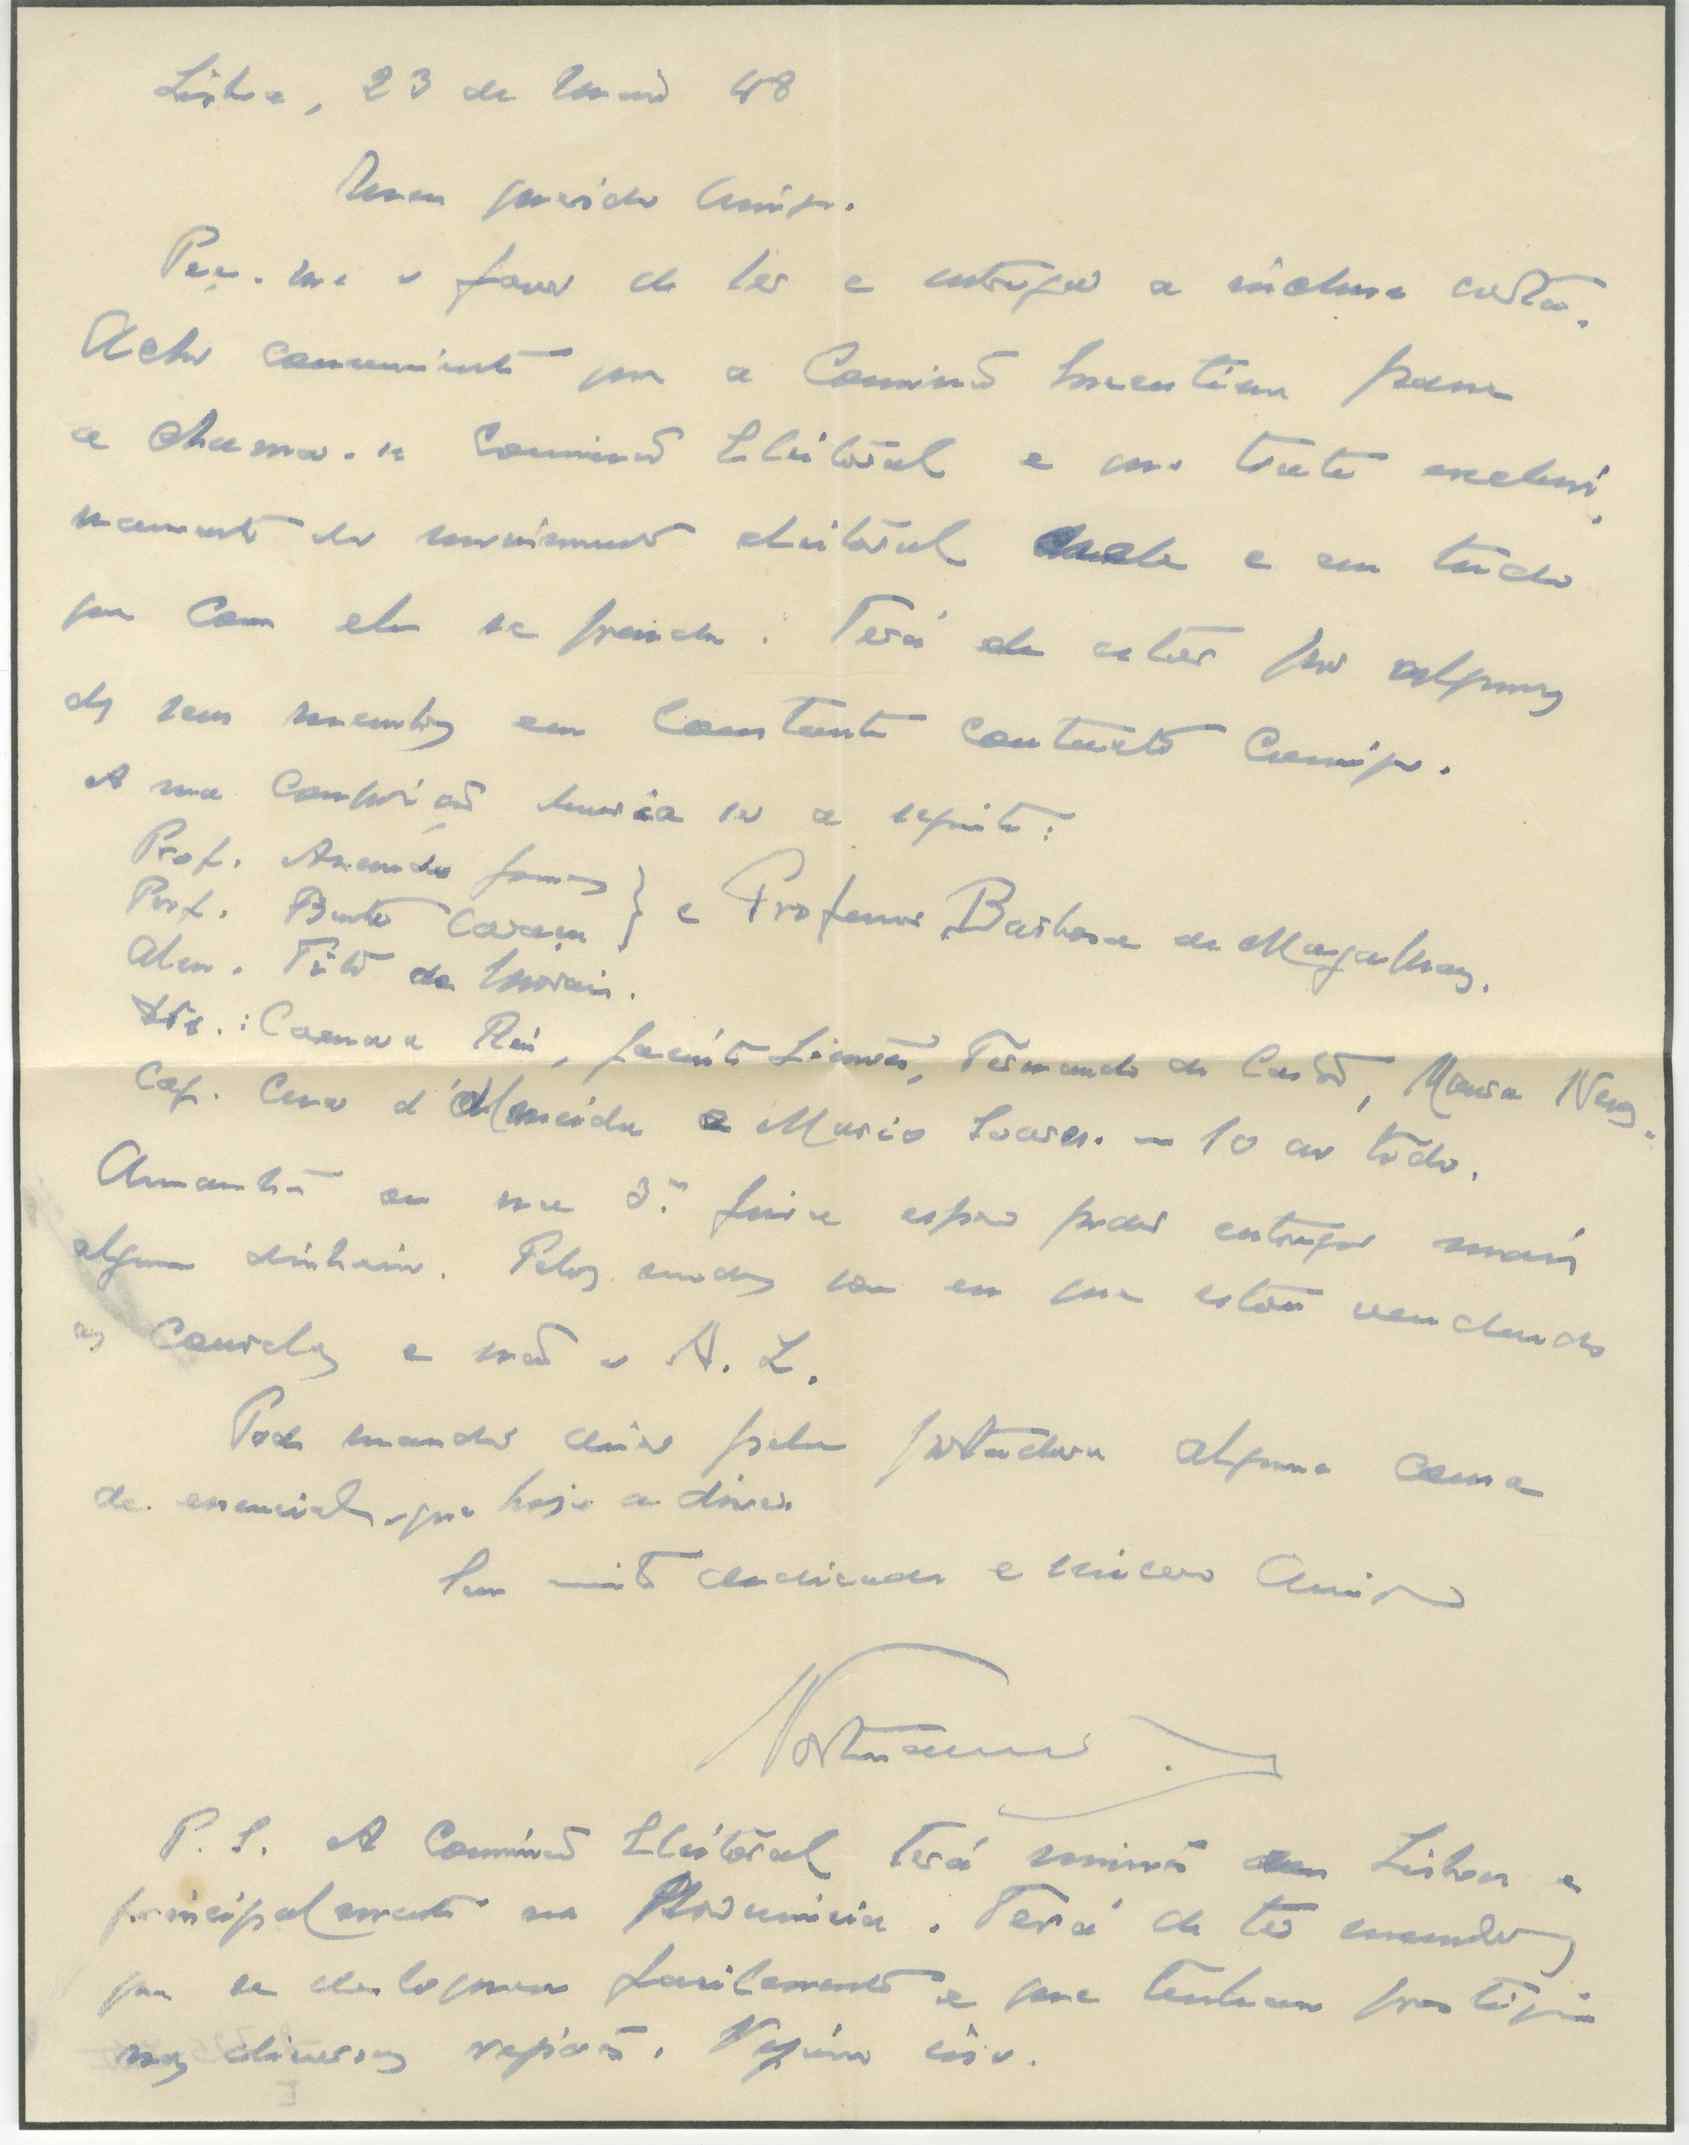 Lisboa, 23 de Maio 48
Meu querido Amigo.
Peço-me o favor de ler e entregar a inclusa carta.
Acho conveniente que a Comissão Executiva passe
a chamar-se Comissão Eleitoral e que trate exclusi-
vamente do movimento eleitoral e em tudo
que com ele se prenda. Terá de estar por alguns
dos seus membros em constante contacto comigo.
A sua composição deveria ser a seguinte:
Prof. Azevedo Gomes
Prof. Bento Caraça } e Professor Barbosa de Magalhães.
Alm. Tito de Morais.
Drs.: Camara Reis, Jacinto Simões, Fernando de Castro, Moura Neves.
Cap. d'Almeida e Mario Soares. — 10 ao todo.
Amanhã ou na 3.ª feira espero poder entregar mais
algum dinheiro. Pelos modos sou eu que estou vendendo
as e não o A. L.
Pode mandar dizer pela portadora alguma cousa
de essencial, que haja a dizer
Seu muito dedicado e sincero Amigo
P. S. A Comissão Eleitoral terá missão em Lisboa e
principalmente na Provincia. Terá de ter membros
que se desloquem facilmente e que tenham prestígio
nas diversas regiões. isso.